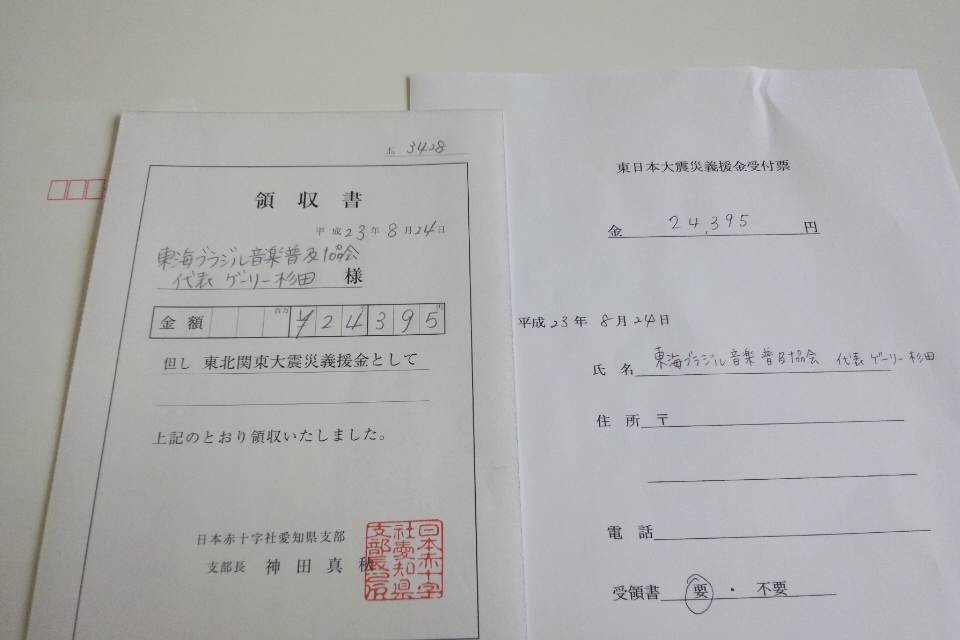 3428
領収書
平成23年8月24日
東海ブラジル音楽普及協会
代表 ゲーリー杉田 様
金額 ¥24395
但し 東北関東大震災義援金として
上記のとおり領収いたしました。
日本赤十字社愛知県支部
支部長 神田真
日本赤十字
社愛知県
支部長之印
東日本大震災義援金受付票
金 24,395 円
平成23年 8月24日
氏名 東海ブラジル音楽普及協会 代表ゲーリー杉田
住所 〒
電話
受領書 要 ・ 不要